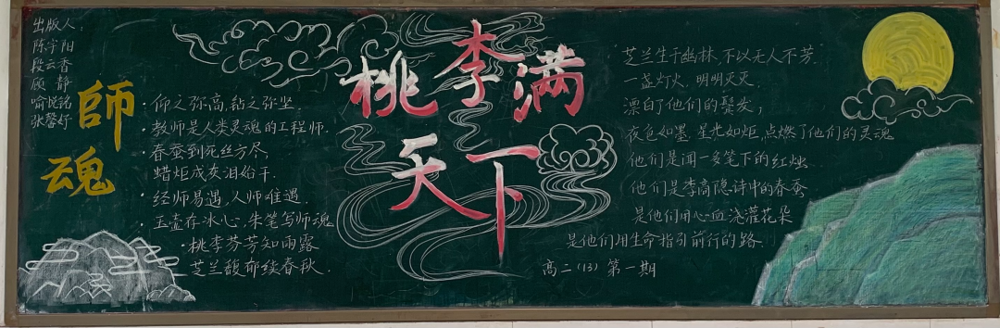 出版人:
陈宇阳
段云香
顾静
喻悦铭
张馨妤
師魂
桃李满
天下
·仰之弥高,钻之弥坚.
·教师是人类灵魂的工程师.
·春蚕到死丝方尽,
蜡炬成灰泪始干.
·经师易遇,人师难遇.
·玉壶存冰心,朱笔写师魂
·桃李芬芳知雨露
芝兰馥郁续春秋.
"芝兰生于幽林,不以无人不芳."
一盏灯火,明明灭灭.
漂白了他们的鬓发,
夜色如墨,星光如炬,点燃了他们的灵魂
他们是闻一多笔下的红烛
他们是李商隐诗中的春蚕
是他们用心血浇灌花朵
是他们用生命指引前行的路.
高二(13)第一期